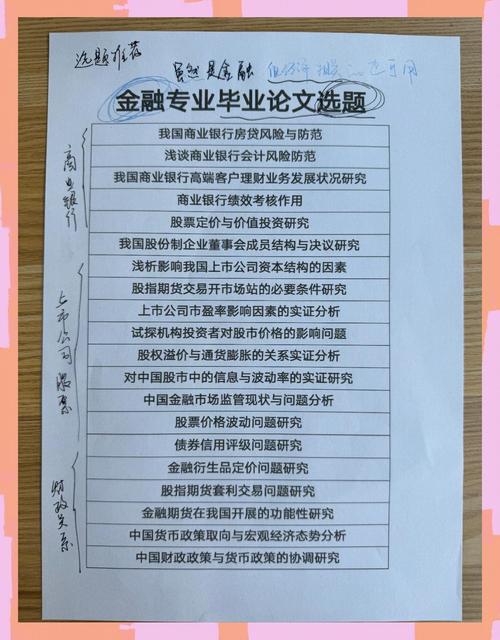 选题推荐
虽然是金融
金融专业毕业论文选题
商业银行
我国商业银行房贷风险与防范
浅谈商业银行会计风险防范
我国商业银行高端客户理财业务发展状况研究
商业银行绩效考核作用
股票定价与价值投资研究
我国股份制企业董事会成员结构与决议研究
上市公司股票
浅析影响我国上市公司资本结构的因素
股指期货交易开市场站的必要条件研究
上市公司市盈率影响因素的实证分析
试探机构投资者对股市价格的影响问题
股权溢价与通货膨胀的关系实证分析
对中国股市中的信息与波动率的实证研究
中国金融市场监管现状与问题分析
股票价格波动问题研究
债券信用评级问题研究
财政关系
金融衍生品定价问题研究
股指期货套利交易问题研究
金融期货在我国开展的功能性研究
中国货币政策取向与宏观经济态势分析
中国财政政策与货币政策的协调研究